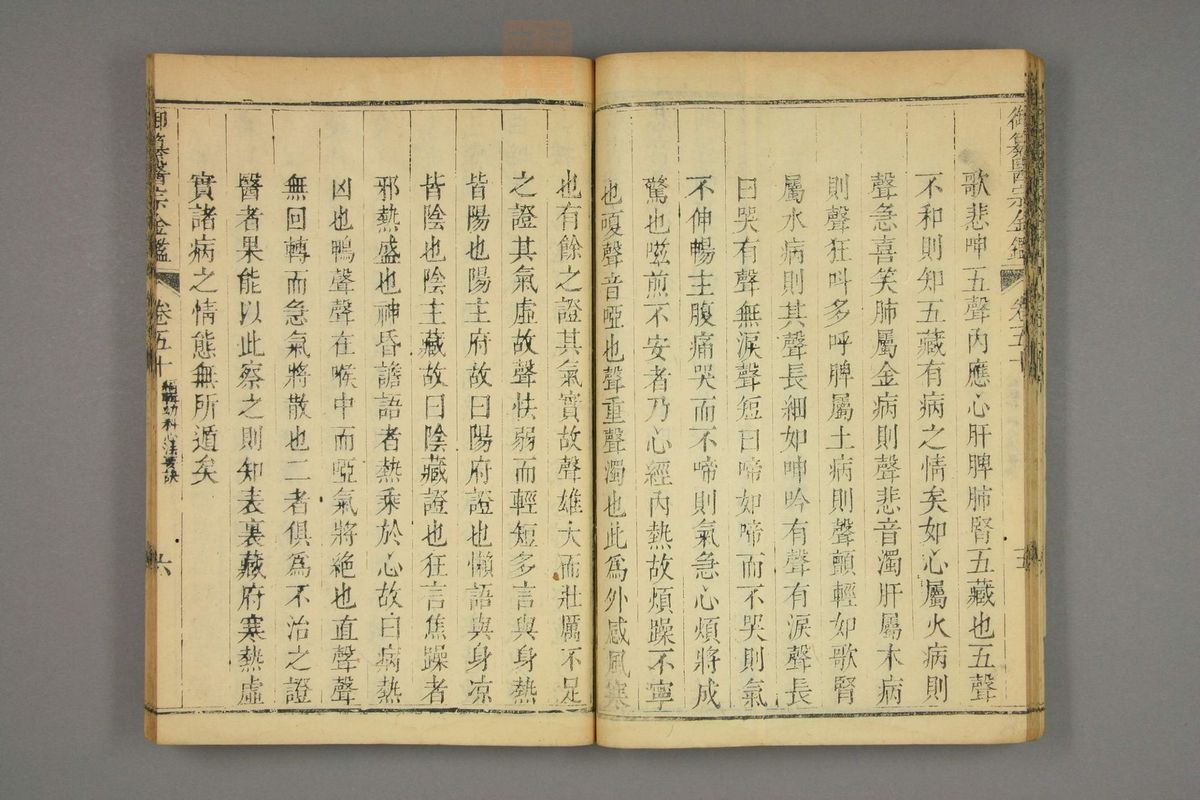 御纂醫宗金鑑 卷五十 五
歌悲呻五聲內應心肝脾肺腎五藏也五聲
不和則知五藏有病之情矣如心屬火病則
聲急喜笑肺屬金病則聲悲音濁肝屬木病
則聲狂叫多呼脾屬土病則聲顫輕如歌腎
屬水病則其聲長細如呻吟有聲有淚聲長
曰哭有聲無淚聲短曰啼如啼而不哭則氣
不伸暢主腹痛哭而不啼則氣急心煩將成
驚也嗞煎不安者乃心經內熱故煩躁不寧
也嗄聲音啞也聲重聲濁也此爲外感風寒
也有餘之證其氣實故聲雄大而壯厲不足
之證其氣虛故聲怯弱而輕短多言與身熱
皆陽也陽主府故曰陽府證也懶語與身凉
皆陰也陰主藏故曰陰藏證也狂言焦躁者
邪熱盛也神昏譫語者熱乘於心故曰病熱
凶也鴨聲聲在喉中而啞氣將絕也直聲聲
無回轉而急氣將散也二者俱爲不治之證
醫者果能以此察之則知表裏藏府寒熱虛
實諸病之情態無所遁矣
御纂醫宗金鑑 卷五十 編輯幼科心法要訣 六